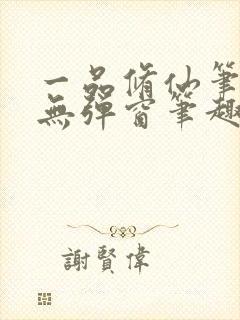 一品脩仙筆
無彈窗筆趣
謝賢偉